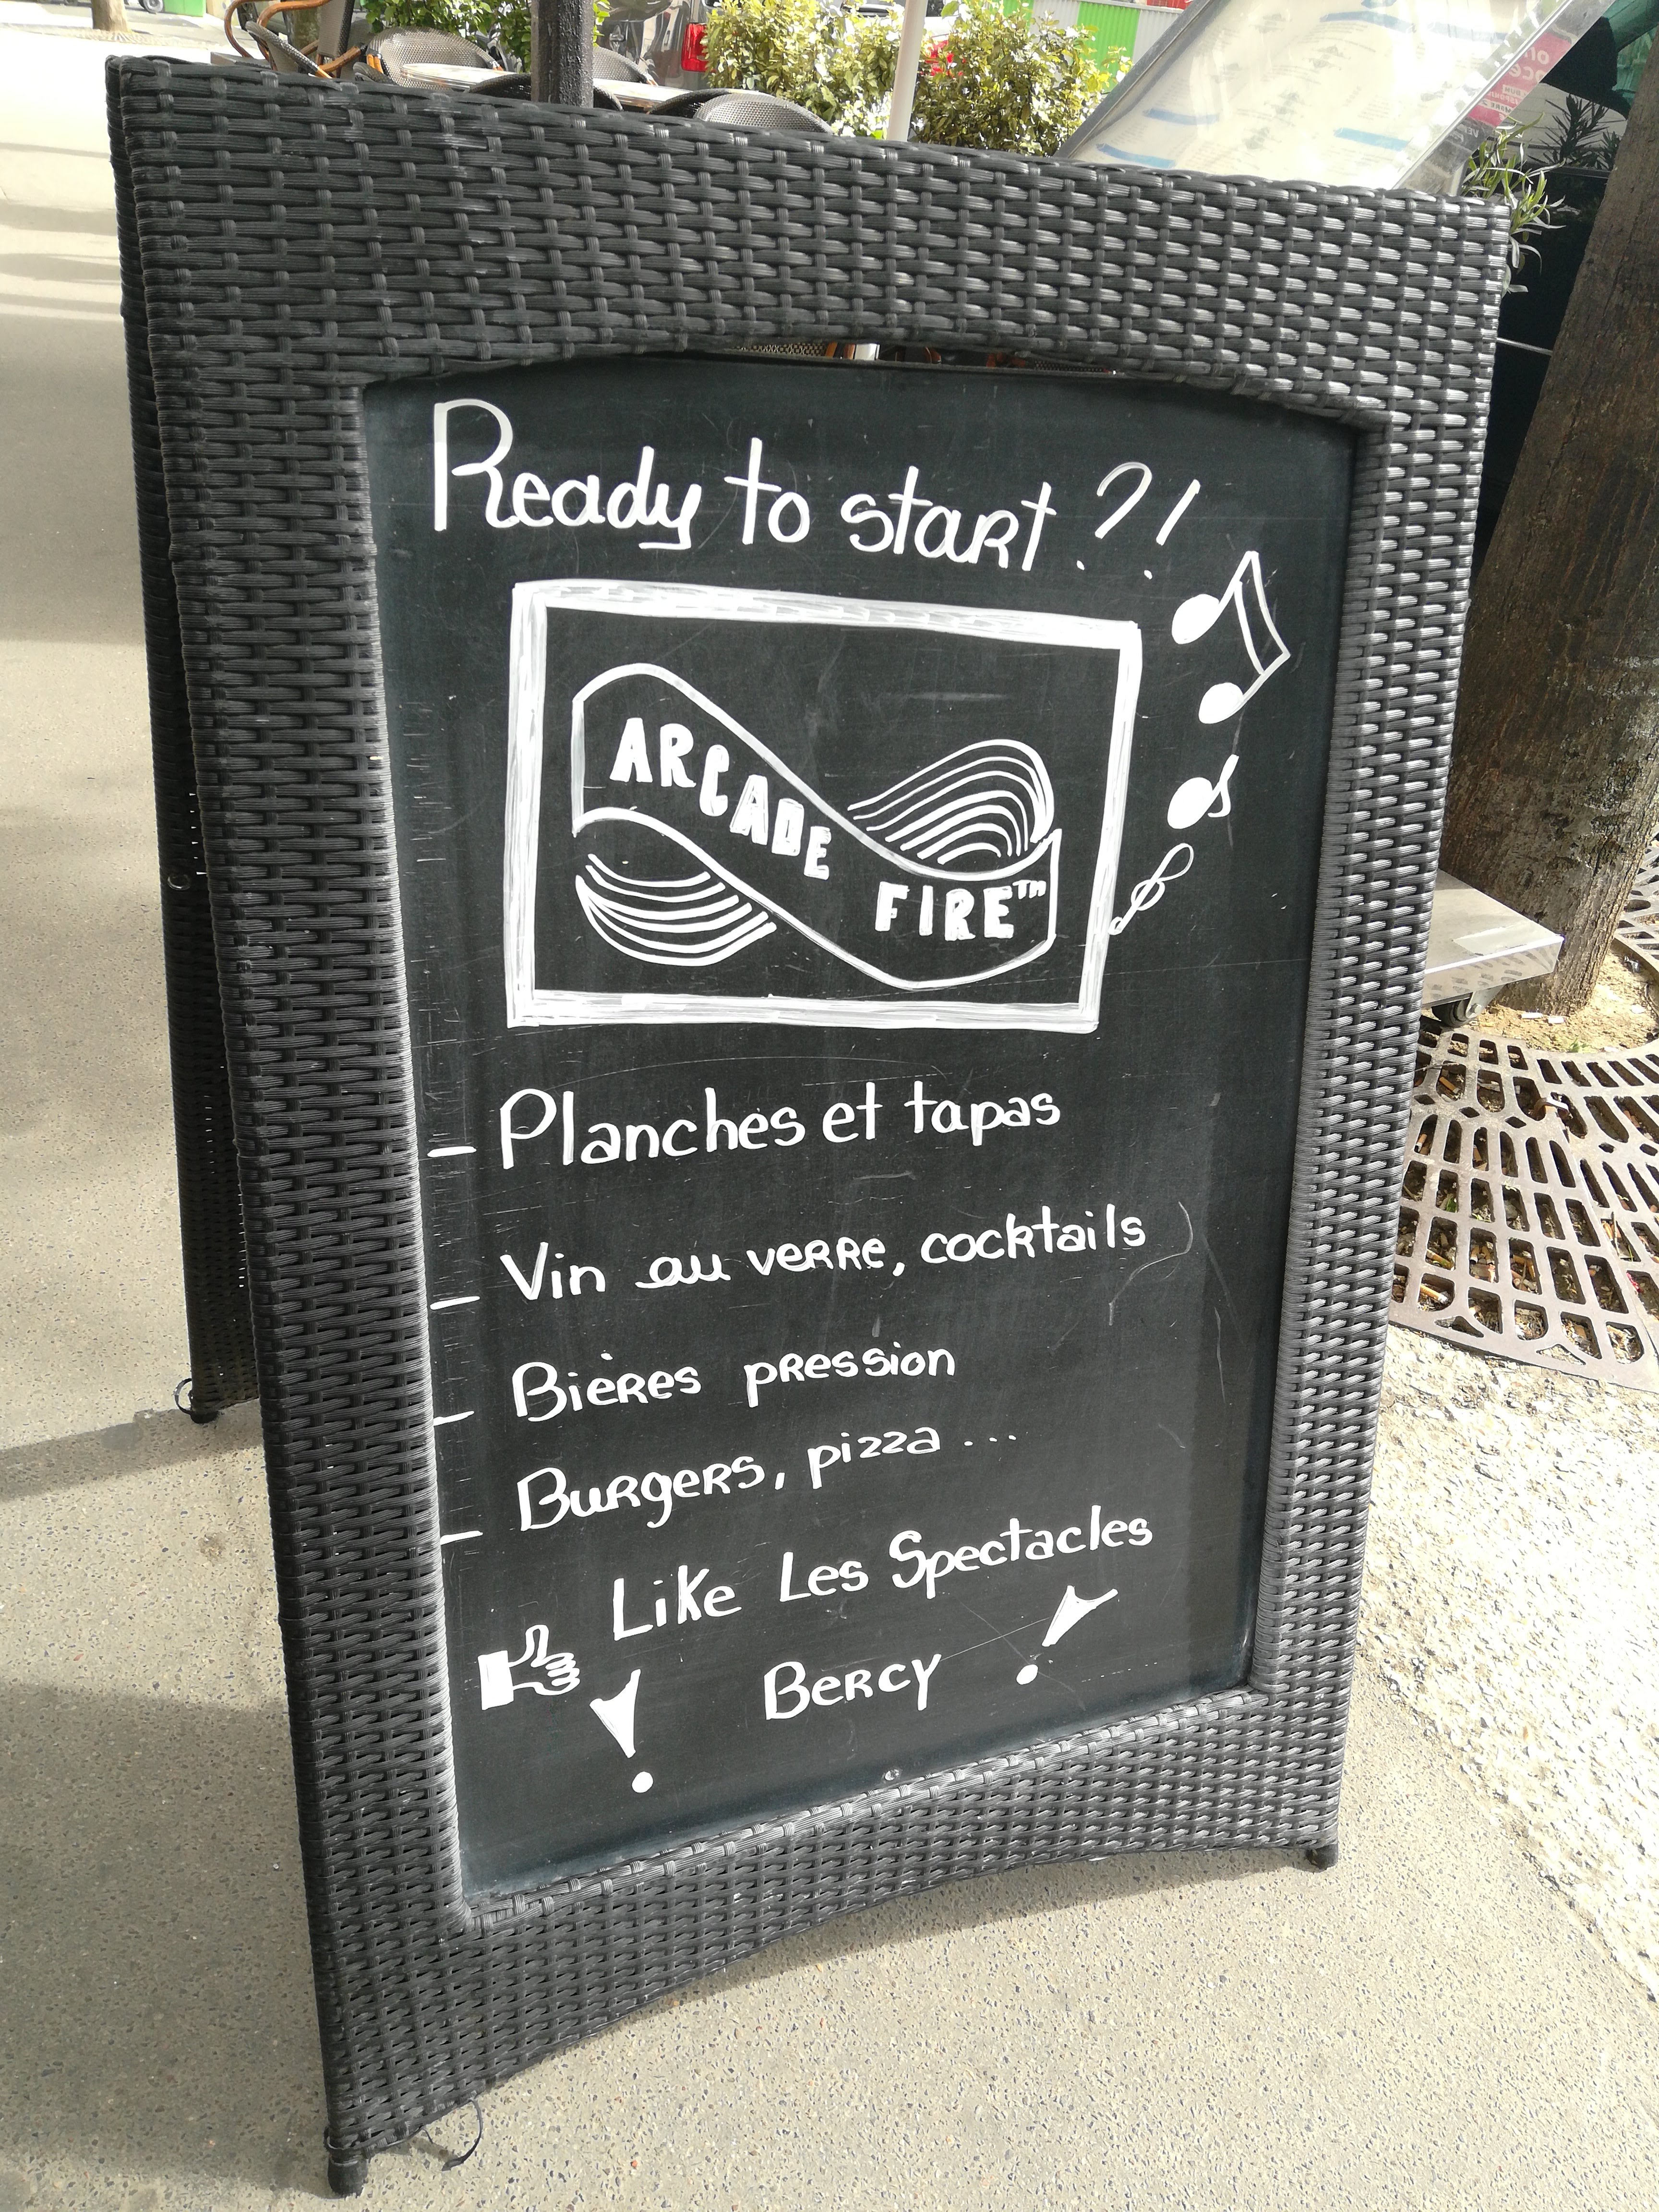 Ready to start ?!
ARCADE
FIRE™
- Planches et tapas
- Vin au verre, cocktails
- Bières pression
- Burgers, pizza ...
Like Les Spectacles
! Bercy !